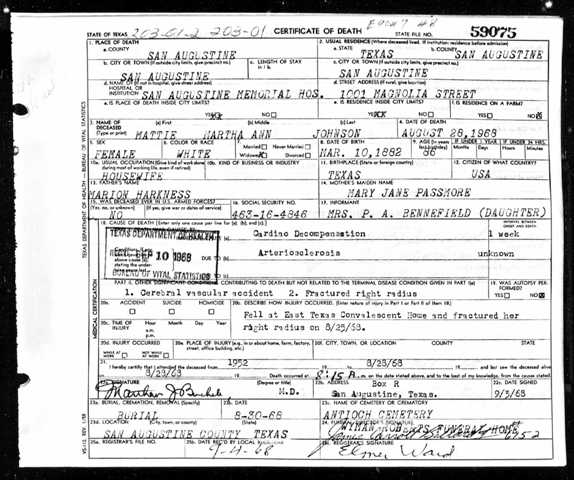 STATE OF TEXAS 203-01-2 203-01 CERTIFICATE OF DEATH STATE FILE NO. 59075
1. PLACE OF DEATH 2. USUAL RESIDENCE (Where deceased lived. If institution: residence before admission)
a. COUNTY SAN AUGUSTINE a. STATE TEXAS b. COUNTY SAN AUGUSTINE
b. CITY OR TOWN (If outside city limits, give precinct no.) c. LENGTH OF STAY c. CITY OR TOWN (If outside city limits, give precinct no.)
SAN AUGUSTINE SAN AUGUSTINE
d. NAME OF (If not in hospital, give street address) d. STREET ADDRESS (If rural, give location)
HOSPITAL OR INSTITUTION SAN AUGUSTINE MEMORIAL HOS. 1001 MAGNOLIA STREET
e. IS PLACE OF DEATH INSIDE CITY LIMITS? e. IS RESIDENCE INSIDE CITY LIMITS? f. IS RESIDENCE ON A FARM?
YES NO YES NO YES NO
3. NAME OF DECEASED (Type or print) (a) First (b) Middle (c) Last 4. DATE OF DEATH
MATTIE MARTHA ANN JOHNSON AUGUST 28, 1968
5. SEX 6. COLOR OR RACE Married Never Married 8. DATE OF BIRTH 9. AGE IF UNDER 1 YEAR IF UNDER 24 HRS.
FEMALE WHITE Widowed Divorced MAR. 10, 1882 86 Months Days Hours Minutes
10a. USUAL OCCUPATION (Give kind of work done during most of working life, even if retired) 10b. KIND OF BUSINESS OR INDUSTRY 11. BIRTHPLACE (State or foreign country) 12. CITIZEN OF WHAT COUNTRY?
HOUSEWIFE TEXAS USA
13. FATHER'S NAME 14. MOTHER'S MAIDEN NAME
MARION HARKNESS MARY JANE PASSMORE
15. WAS DECEASED EVER IN U.S. ARMED FORCES? 16. SOCIAL SECURITY NO. 17. INFORMANT
NO 463-16-4846 MRS. P. A. BENNEFIELD (DAUGHTER)
18. CAUSE OF DEATH (Enter only one cause per line for (a), (b), and (c).) INTERVAL BETWEEN ONSET AND DEATH
TEXAS DEPARTMENT OF HEALTH Cardiac Decompensation 1 week
REC'D SEP 10 1968 Arteriosclerosis unknown
BUREAU OF VITAL STATISTICS
PART II. OTHER SIGNIFICANT CONDITIONS CONTRIBUTING TO DEATH BUT NOT RELATED TO THE TERMINAL DISEASE CONDITION GIVEN IN PART I(a) 19. WAS AUTOPSY PERFORMED?
1. Cerebral vascular accident 2. Fractured right radius YES NO
20a. ACCIDENT SUICIDE HOMICIDE 20b. DESCRIBE HOW INJURY OCCURRED. (Enter nature of injury in Part I or Part II of item 18)
Fell at East Texas Convalescent Home and fractured her
20c. TIME OF INJURY Hour a.m. p.m. Month Day Year right radius on 8/25/68.
20d. INJURY OCCURRED 20e. PLACE OF INJURY (e.g., in or about home, farm, factory, street, office building, etc.) 20f. CITY, TOWN, OR LOCATION COUNTY STATE
WHILE AT WORK NOT WHILE AT WORK
21. I hereby certify that I attended the deceased from 1952 8/28/68 and last saw the deceased alive
8/28/68 Death occurred at 8:15 A m. on the date stated above, and to the best of my knowledge, from the causes stated.
22a. SIGNATURE (Degree or title) 22b. ADDRESS Box R 22c. DATE SIGNED
M.D. San Augustine, Texas. 9/3/68
23a. BURIAL, CREMATION, REMOVAL (Specify) 23b. DATE 23c. NAME OF CEMETERY OR CREMATORY
BURIAL 8-30-68 ANTIOCH CEMETERY
23d. LOCATION (City, town, or county) (State) 24. FUNERAL DIRECTOR'S SIGNATURE
SAN AUGUSTINE COUNTY TEXAS WYMAN ROBERTS FUNERAL HOME
25a. REGISTRAR'S FILE NO. 25b. DATE REC'D BY LOCAL REGISTRAR 25c. REGISTRAR'S SIGNATURE
9-4-68 Elmer Ward
TEXAS DEPARTMENT OF HEALTH BUREAU OF VITAL STATISTICS
MEDICAL CERTIFICATION